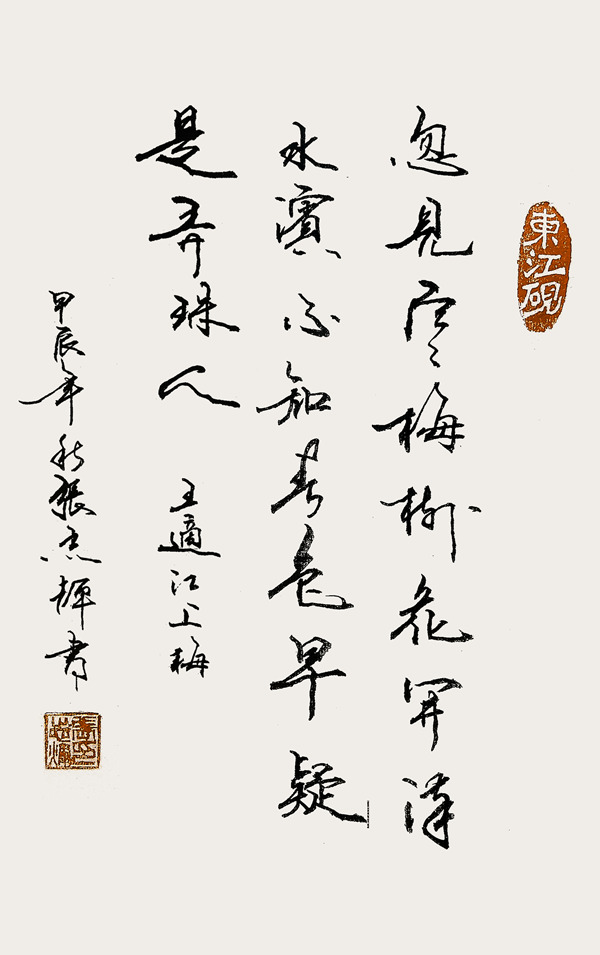 東江砚
忽見寒梅樹花開漢
水濱不知春色早疑
是弄珠人
王適江上梅
甲辰年秋張杰輝書